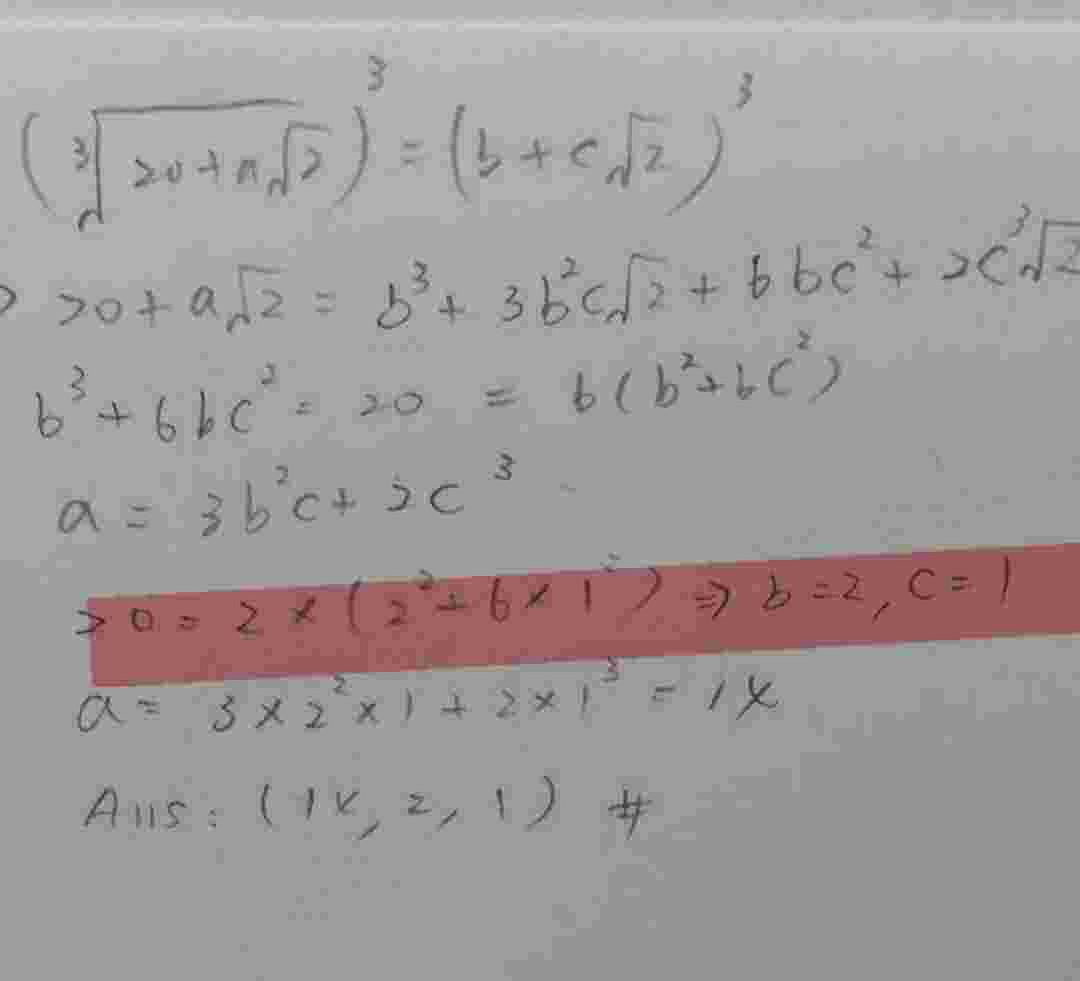 (∛(20+a√2))³ = (b+c√2)³
⇒ 20+a√2 = b³+3b²c√2+6bc²+2c³√2
b³+6bc² = 20 = b(b²+6c²)
a = 3b²c+2c³
20 = 2×(2²+6×1²) ⇒ b=2, c=1
a = 3×2²×1+2×1³ = 14
Ans: (14, 2, 1) #